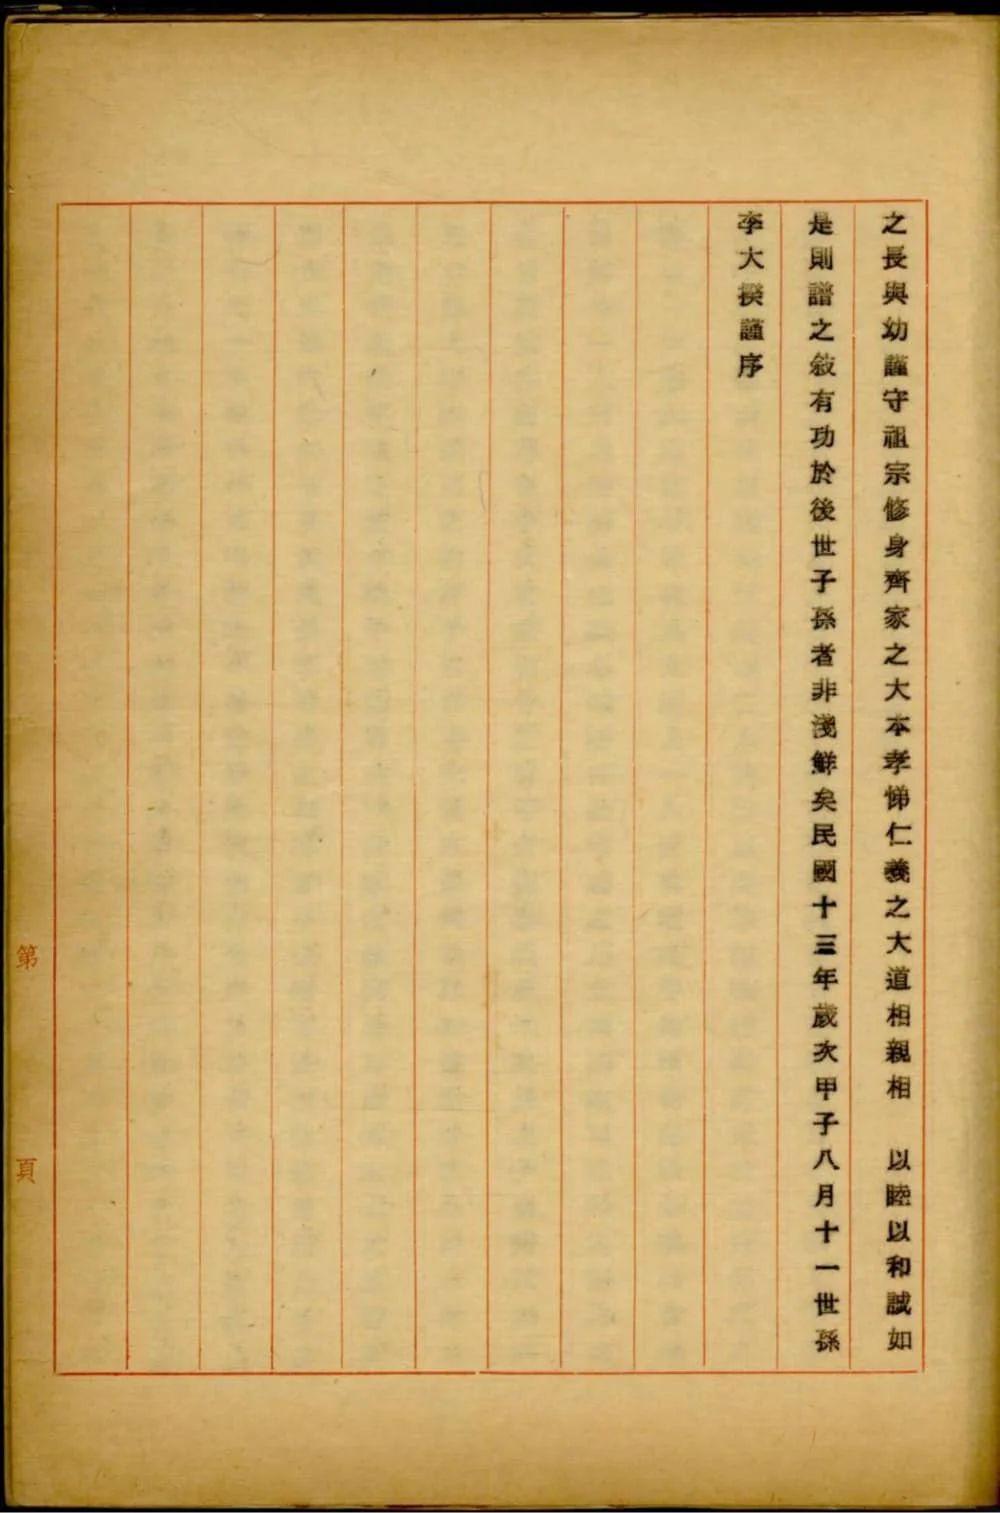 之長與幼謹守祖宗修身齊家之大本孝悌仁義之大道相親相　以睦以和誠如
是則譜之敍有功於後世子孫者非淺鮮矣民國十三年歲次甲子八月十一世孫
李大揆謹序
第　頁